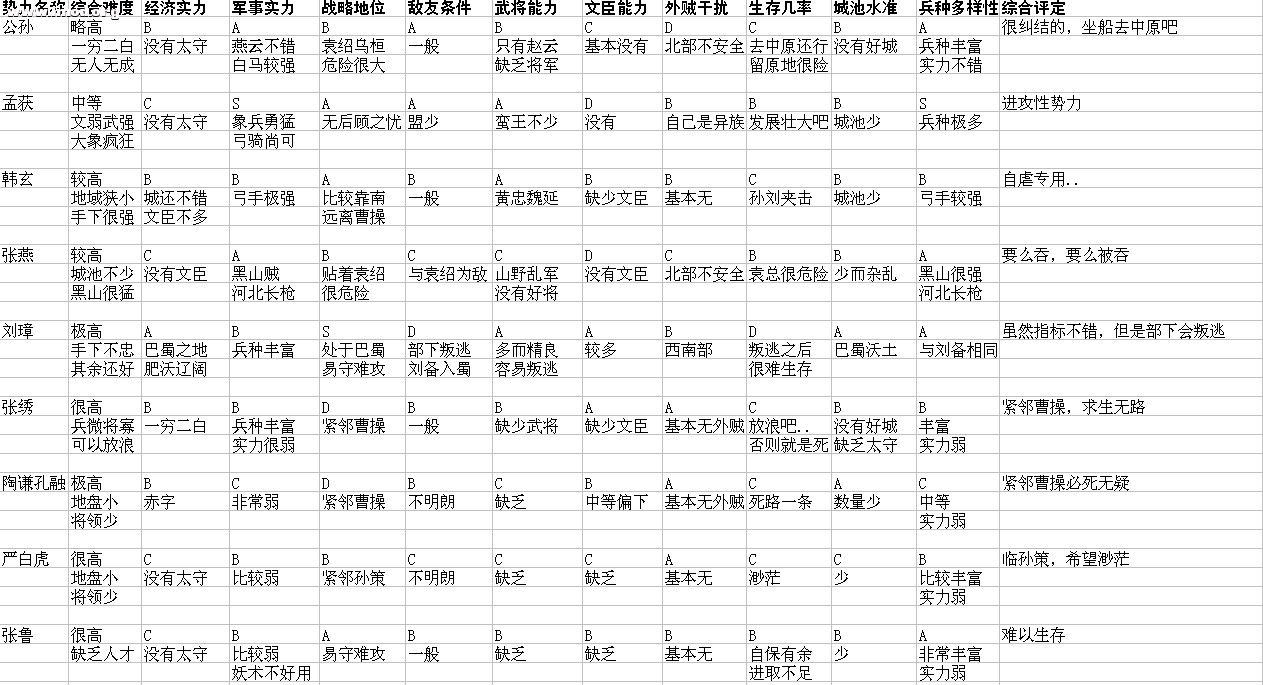 势力名称 综合难度 经济实力 军事实力 战略地位 敌友条件 武将能力 文臣能力 外贼干扰 生存几率 城池水准 兵种多样性 综合评定
公孙 略高 B A B A B C D C B A 很纠结的，坐船去中原吧
一穷二白 没有太守 燕云不错 袁绍乌桓 一般 只有赵云 基本没有 北部不安全 去中原还行 没有好城 兵种丰富
无人无成 白马较强 危险很大 缺乏将军 留原地很险 实力不错
孟获 中等 C S A A A D B B B S 进攻性势力
文弱武强 没有太守 象兵勇猛 无后顾之忧 盟少 蛮王不少 没有 自己是异族 发展壮大吧 城池少 兵种极多
大象疯狂 弓骑尚可
韩玄 较高 B B A B A B B C B B 自虐专用..
地域狭小 城还不错 弓手极强 比较靠南 一般 黄忠魏延 缺少文臣 基本无 孙刘夹击 城池少 弓手较强
手下很强 文臣不多 远离曹操
张燕 较高 C A B C C D C B B A 要么吞，要么被吞
城池不少 没有文臣 黑山贼 贴着袁绍 与袁绍为敌 山野乱军 没有文臣 北部不安全 袁总很危险 少而杂乱 黑山很强
黑山很猛 河北长枪 很危险 没有好将 河北长枪
刘璋 极高 A B S D A A B D A A 虽然指标不错，但是部下会叛逃
手下不忠 巴蜀之地 兵种丰富 处于巴蜀 部下叛逃 多而精良 较多 西南部 叛逃之后 巴蜀沃土 与刘备相同
其余还好 肥沃辽阔 易守难攻 刘备入蜀 容易叛逃 很难生存
张绣 很高 B B D B B A A C B B 紧邻曹操，求生无路
兵微将寡 一穷二白 兵种丰富 紧邻曹操 一般 缺少武将 缺少文臣 基本无外贼 放浪吧.. 没有好城 丰富
可以放浪 实力很弱 否则就是死 缺乏太守 实力弱
陶谦孔融 极高 B C D B C B A C A C 紧邻曹操必死无疑
地盘小 赤字 非常弱 紧邻曹操 不明朗 缺乏 中等偏下 基本无外贼 死路一条 数量少 中等
将领少 实力弱
严白虎 很高 C B B C C C A C C B 临孙策，希望渺茫
地盘小 没有太守 比较弱 紧邻孙策 不明朗 缺乏 缺乏 基本无 渺茫 少 比较丰富
将领少 实力弱
张鲁 很高 C B A B B B B B B A 难以生存
缺乏人才 没有太守 比较弱 易守难攻 一般 缺乏 缺乏 基本无 自保有余 少 非常丰富
妖术不好用 进取不足 实力弱